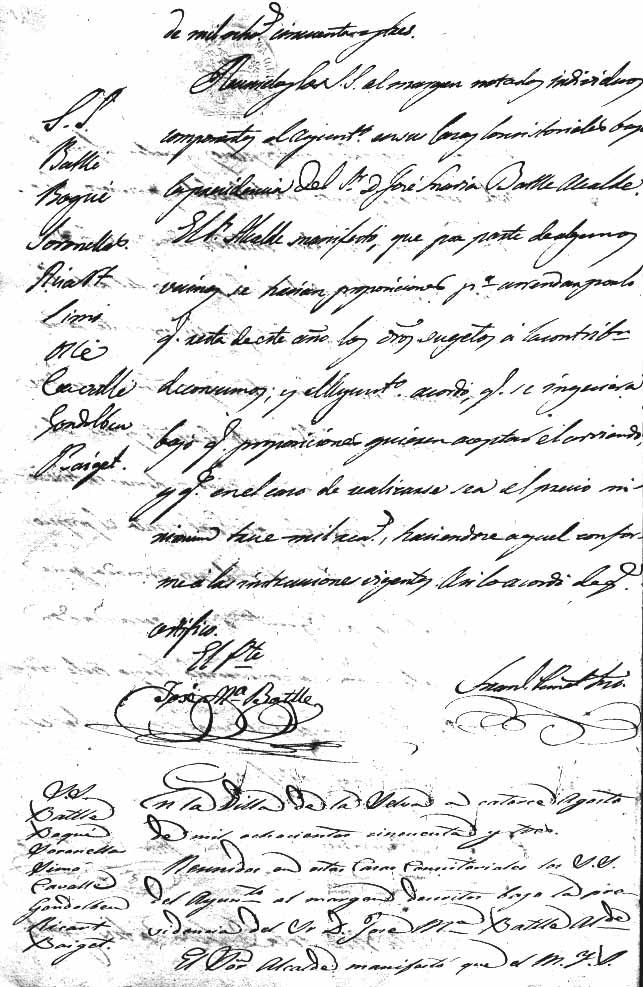 de mil ochᵗ. cincuenta y tres.
Reunidos los S.S. al margen notados individuos
componentes el ayuntᵒ. en sus Casas Consistoriales bajo
la presidencia del Sʳ. D. José Maria Batlle Alcalde.
El Sʳ. Alcalde manifestó, que por parte de algunos
vecinos se hacian proposiciones pᵃ. arrendar por lo
q. resta de este año los dros. sugetos á la contribⁿ
de consumos; y el Ayuntᵒ. acordó, q. se ingeriera
bajo q. proposiciones quieren aceptar el arriendo,
y q. en el caso de realizarse sea el precio mi-
nimum trece mil rsᵛ., haciendose aquel confor-
me a las instrucciones vigentes. Asi lo acordó de q.
certifico.
S.S.
Batlle
Bogué
Soronellas.
Ricart
Simó
Ollé
Cavallé
Gondolbeu
Baiget.
El Pᵗᵉ
José Mᵃ Batlle
S.S.
Batlle
Bogué
Soronellas
Simó
Cavallé
Gondolbeu
Ricart
Baiget.
En la Villa de la Selva a catorce Agosto
de mil ochocientos cincuenta y tres.
Reunidos en estas Casas Consistoriales los S.S.
del Ayuntᵗᵒ al margen descritos bajo la pre-
sidencia del Sr D. José Mᵃ Batlle Alᵈᵉ
El Sor Alcalde manifestó que el M. Y. S.